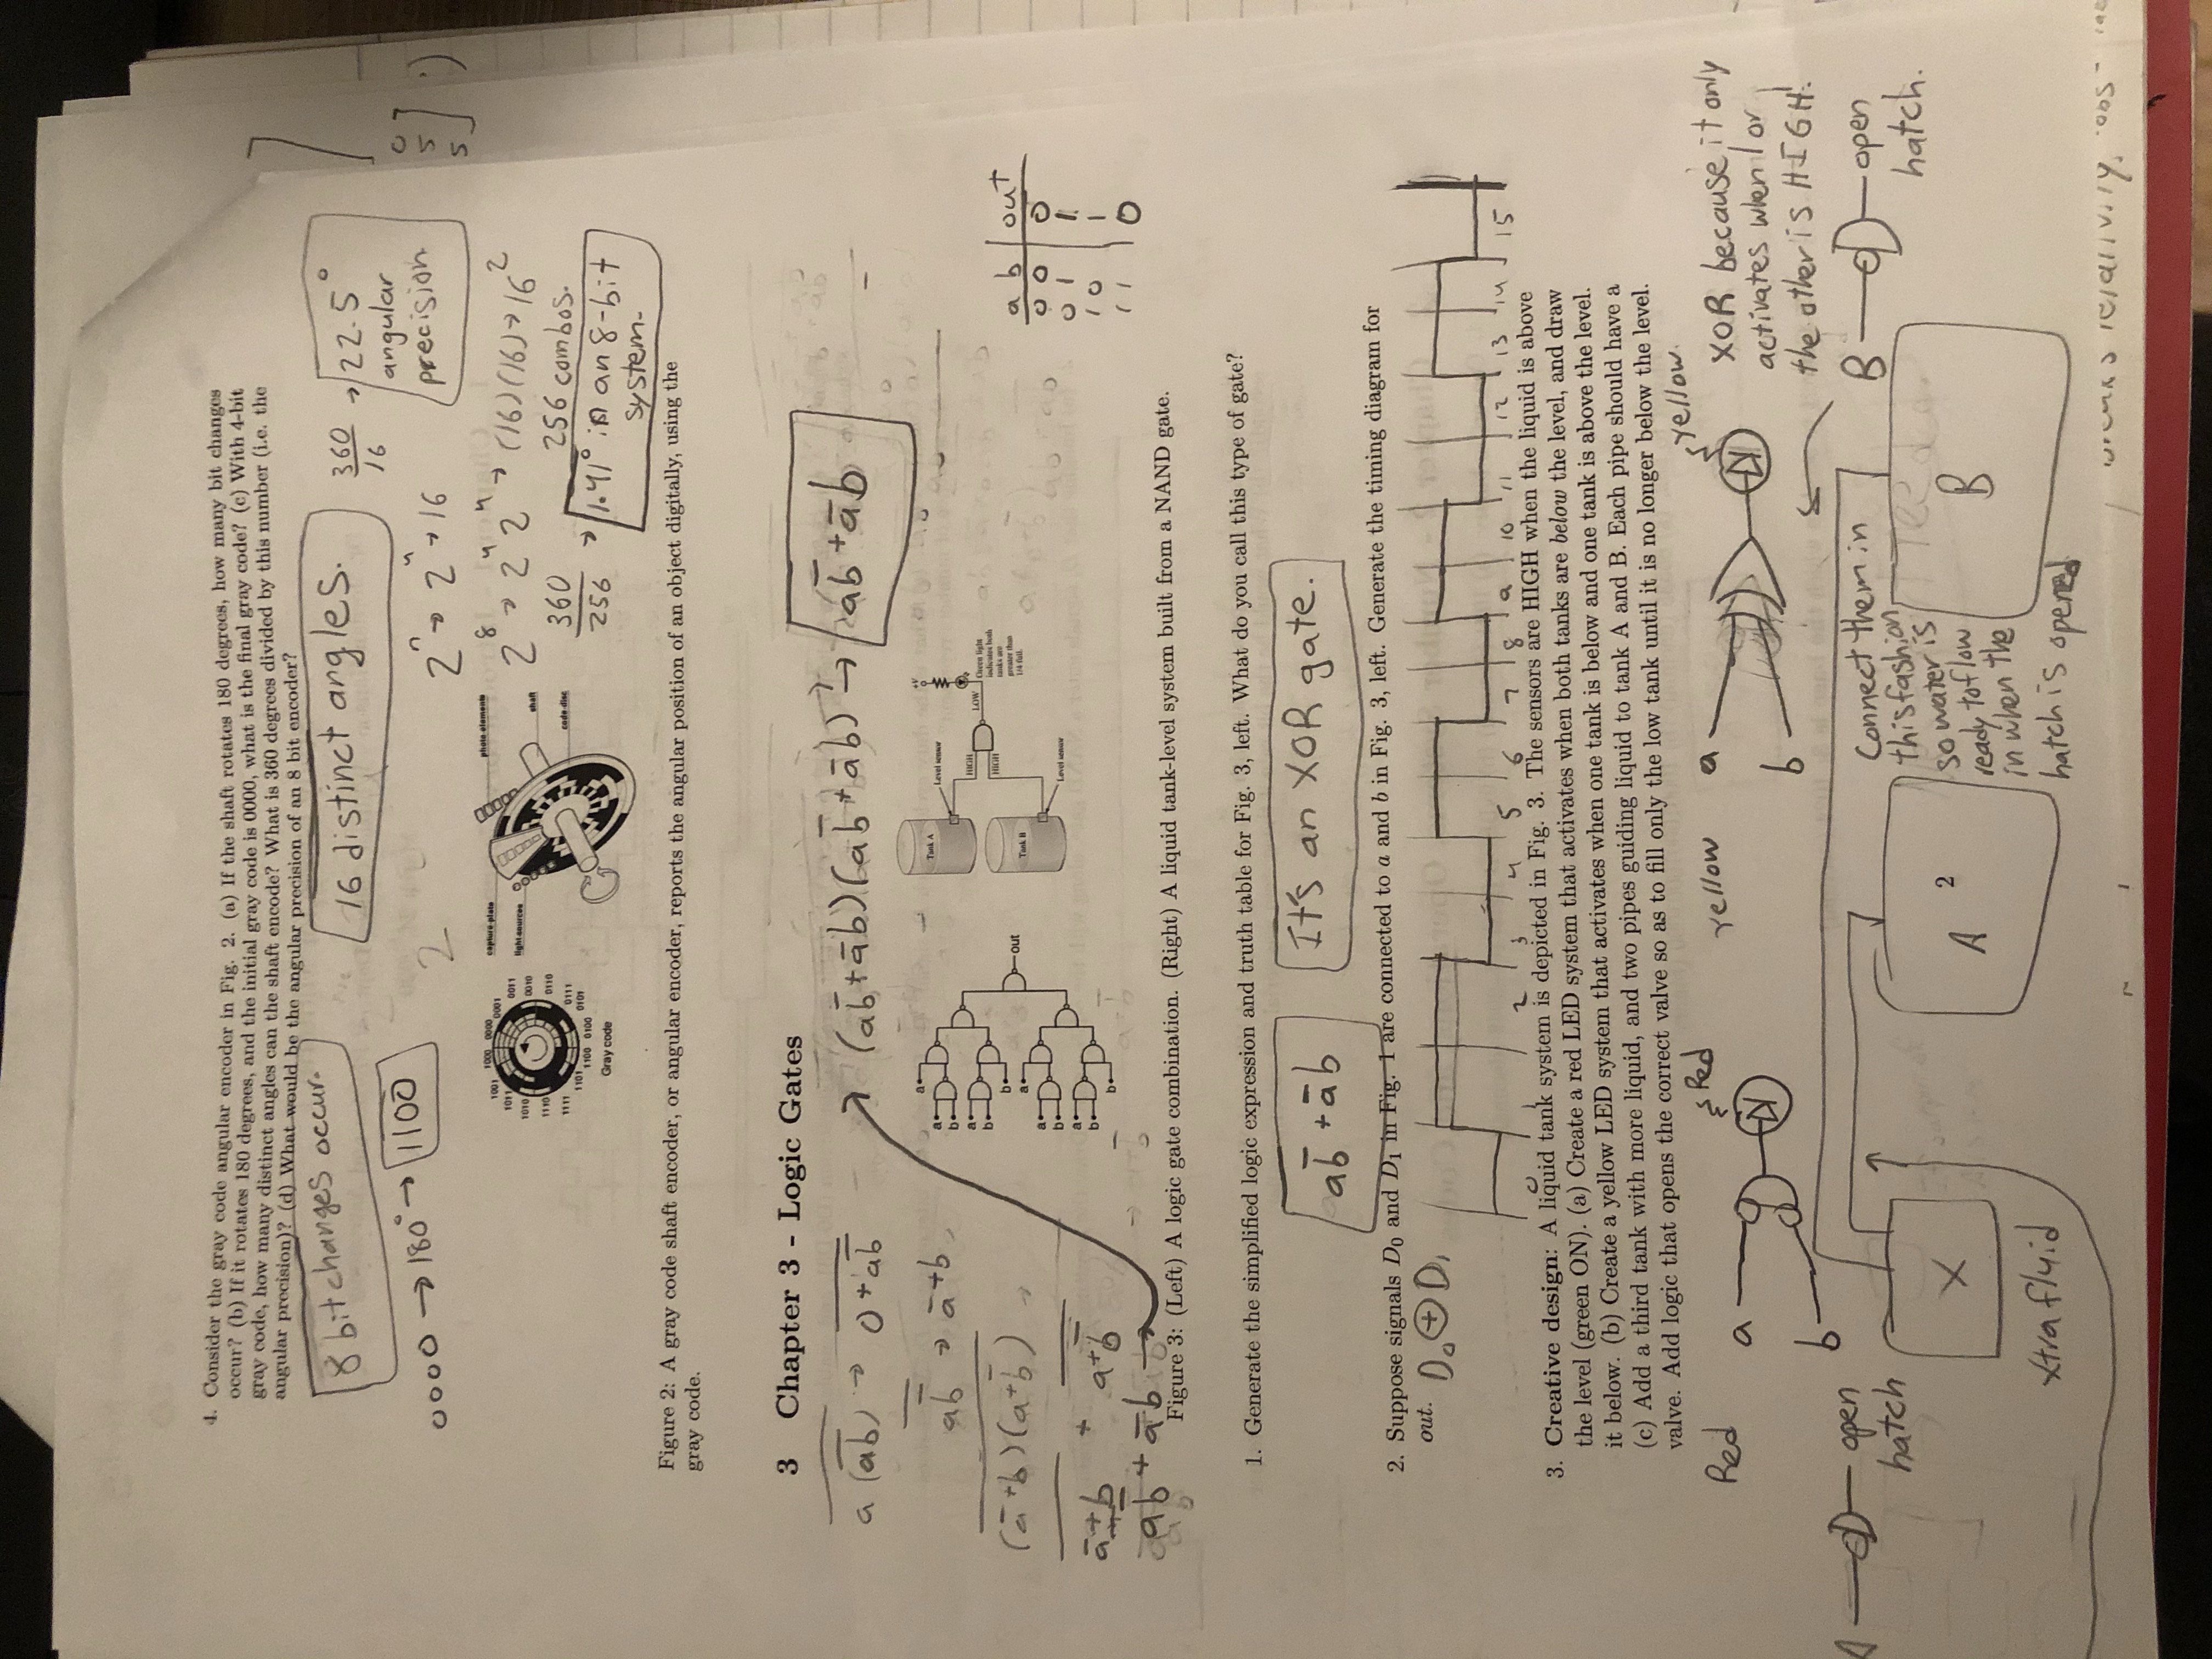 4. Consider the gray code angular encoder in Fig. 2. (a) If the shaft rotates 180 degrees, how many bit changes
occur? (b) If it rotates 180 degrees, and the initial gray code is 0000, what is the final gray code? (c) With 4-bit
gray code, how many distinct angles can the shaft encode? What is 360 degrees divided by this number (i.e. the
angular precision)? (d) What would be the angular precision of an 8 bit encoder?
8 bit changes occur.
16 distinct angles.
360/16 → 22.5°
angular
precision
0000 → 180° → 1100
2
2ⁿ → 2⁴ → 16
2⁸ → 2⁴ 2⁴ → (16)(16) → 16²
256 combos.
360/256 → 1.41° in an 8-bit
system.
0
5
5
1000 0000
1001 0001
1011 0011
1010 0010
1110 0110
1111 0111
1101 0101
1100 0100
Gray code
capture plate
light sources
photo elements
shaft
code disc
Figure 2: A gray code shaft encoder, or angular encoder, reports the angular position of an object digitally, using the
gray code.
3 Chapter 3 - Logic Gates
a (ab) → 0 + ab̄
ab̄ → ā+b
(ā+b)(a+b̄)
ā+b + a+b̄
ab̄ + āb →
(ab̄+āb)(ab̄+āb) → ab̄+āb
a
a
b
a
b
b
a
a
b
a
b
b
out
Tank A
Level sensor
HIGH
HIGH
LOW
+V
Green light
indicates both
tanks are
greater than
1/4 full.
Tank B
Level sensor
a b | out
0 0 | 0
0 1 | 1
1 0 | 1
1 1 | 0
Figure 3: (Left) A logic gate combination. (Right) A liquid tank-level system built from a NAND gate.
1. Generate the simplified logic expression and truth table for Fig. 3, left. What do you call this type of gate?
ab̄+āb
It's an XOR gate.
2. Suppose signals D₀ and D₁ in Fig. 1 are connected to a and b in Fig. 3, left. Generate the timing diagram for
out.
D₀⊕D₁
0 1 2 3 4 5 6 7 8 9 10 11 12 13 14 15
3. Creative design: A liquid tank system is depicted in Fig. 3. The sensors are HIGH when the liquid is above
the level (green ON). (a) Create a red LED system that activates when both tanks are below the level, and draw
it below. (b) Create a yellow LED system that activates when one tank is below and one tank is above the level.
(c) Add a third tank with more liquid, and two pipes guiding liquid to tank A and B. Each pipe should have a
valve. Add logic that opens the correct valve so as to fill only the low tank until it is no longer below the level.
Red
a
b
Red
yellow
a
b
yellow.
XOR because it only
activates when 1 or
the other is HIGH!
A
open
hatch
X
xtra fluid
A
2
Connect them in
this fashion
so water is
ready to flow
in when the
hatch is opened
B
B
open
hatch.
relativity,